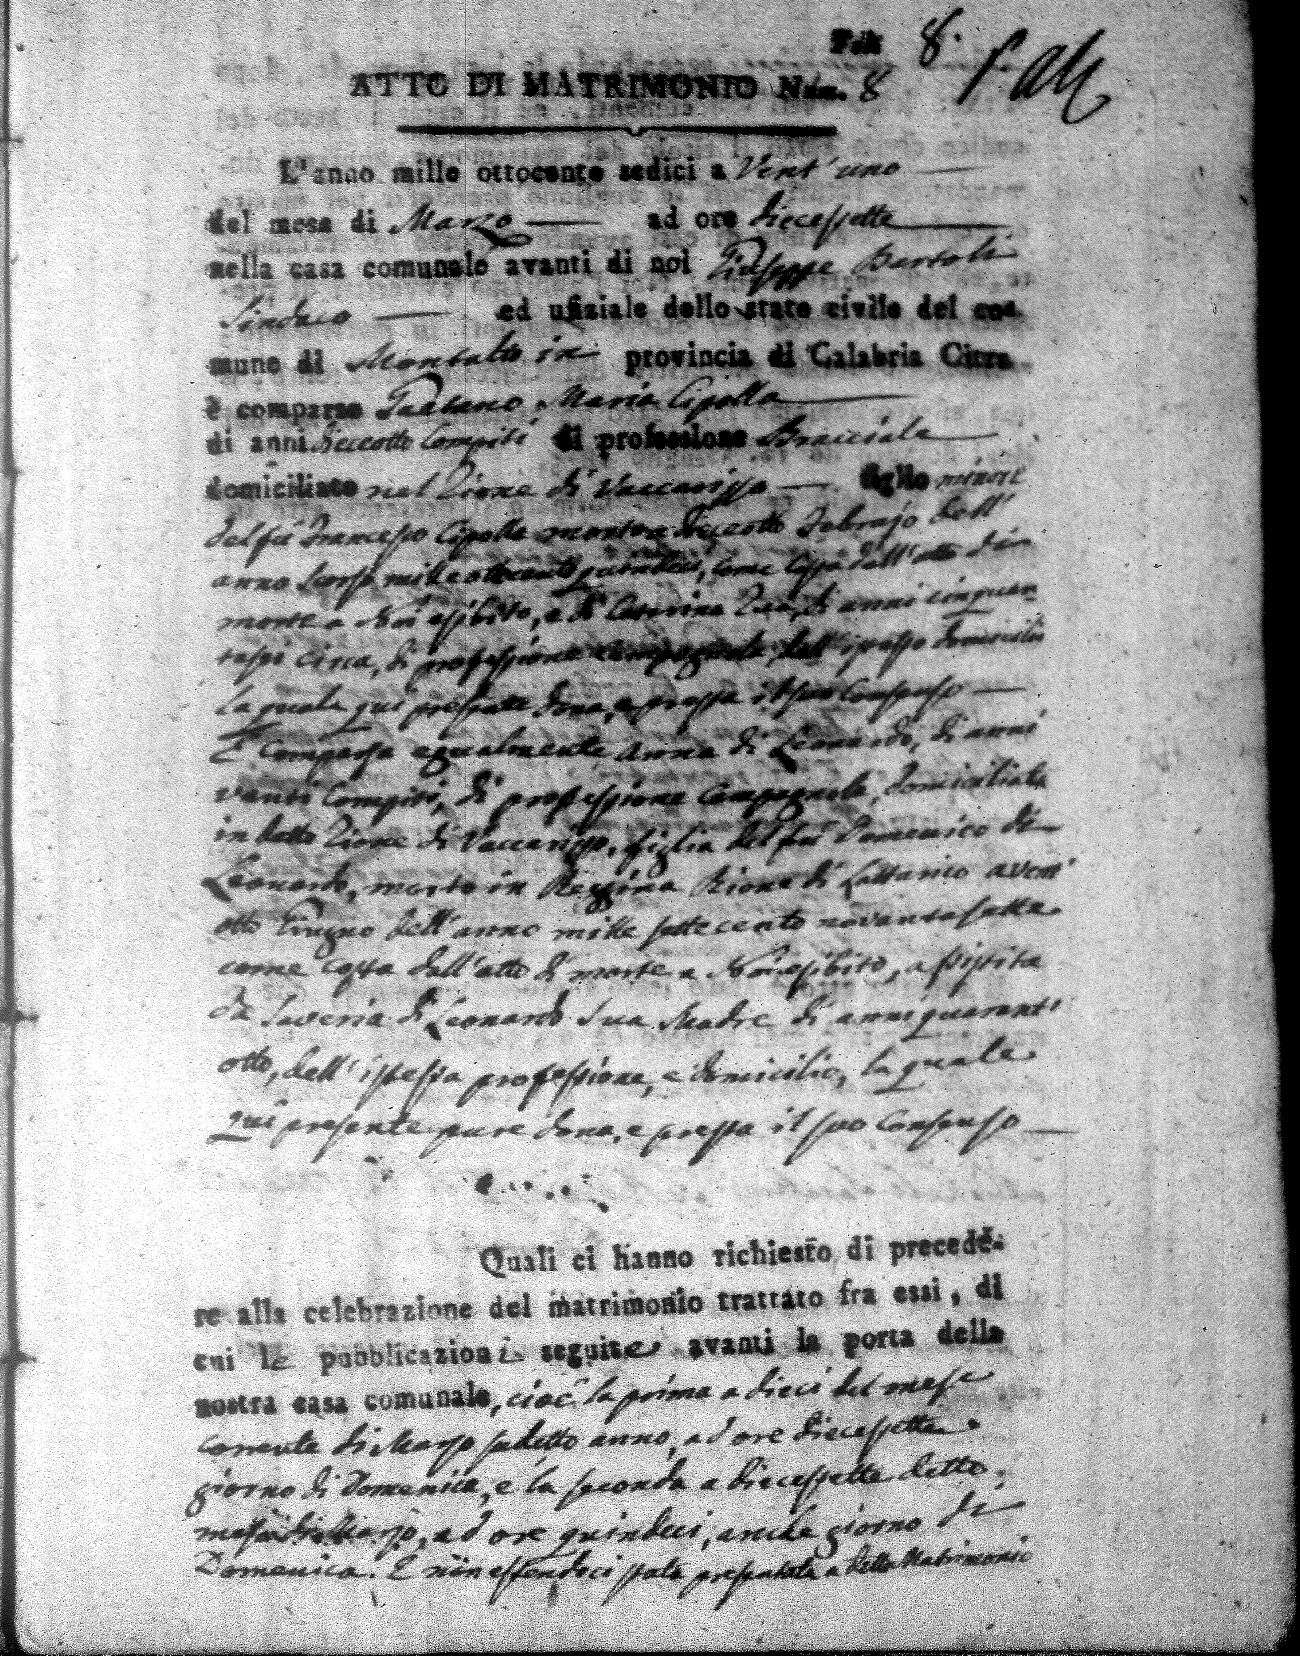 Fol. 8.
ATTO DI MATRIMONIO Núm. 8
L'anno mille ottocento sedici a Vent'uno
del mese di Marzo ad ore diecessette
nella casa comunale avanti di noi Giuseppe Bartoli
Sindaco ed ufiziale dello stato civile del co-
mune di Montalto in provincia di Calabria Citra
è comparso Gaetano Maria Cipolla
di anni Dieccotto Compiti di professione Bracciale
domiciliato nel Rione di Vaccarizzo figlio minore
del fù Francesco Cipolla morto a dieccotto Febrajo dell'
anno scorso mille ottocento quindeci, come costa dall'atto di
morte a Noi esibito, e di Caterina di anni cinquan
tasei circa, di professione Campagnola, dell'istesso domicilio
la quale qui presente dona, e presta il suo Consenso
È Comparsa egualmente Anna di Leonardo, di anni
venti Compiti, di professione Campagnola, domiciliata
in detto Rione di Vaccarizzo, figlia del fù Domenico di
Leonardo, morto in Reggina Rione di Lattarico a vent'
otto Giugno dell'anno mille settecento novantasette
come costa dall'atto di morte a Noi esibito, assistita
da Saveria di Leonardo Sua Madre di anni quarant'
otto, dell'istessa professione, e domicilio, la quale
qui presente pure dona, e presta il suo Consenso
Quali ci hanno richiesto di precede-
re alla celebrazione del matrimonio trattato fra essi, di
cui le pubblicazioni seguite avanti la porta della
nostra casa comunale, cioè la prima a dieci del mese
corrente di Marzo sudetto anno, ad ore diecessette
giorno di Domenica, e la seconda a diecessette detto
mese di Marzo, ad ore quindeci, anche giorno di
Domenica. E niun essendoci stata a detto Matrimonio